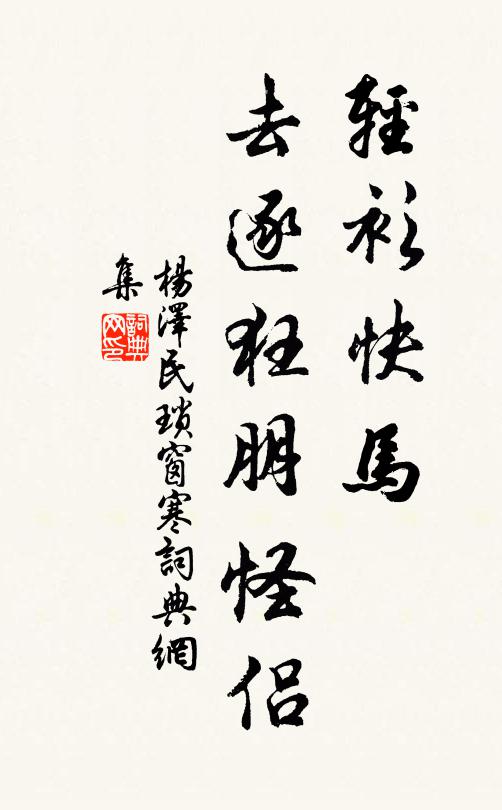 輕衫快馬
去逐狂朋怪侶
楊澤民瑣窗寒詞典網
集
詞典
网印